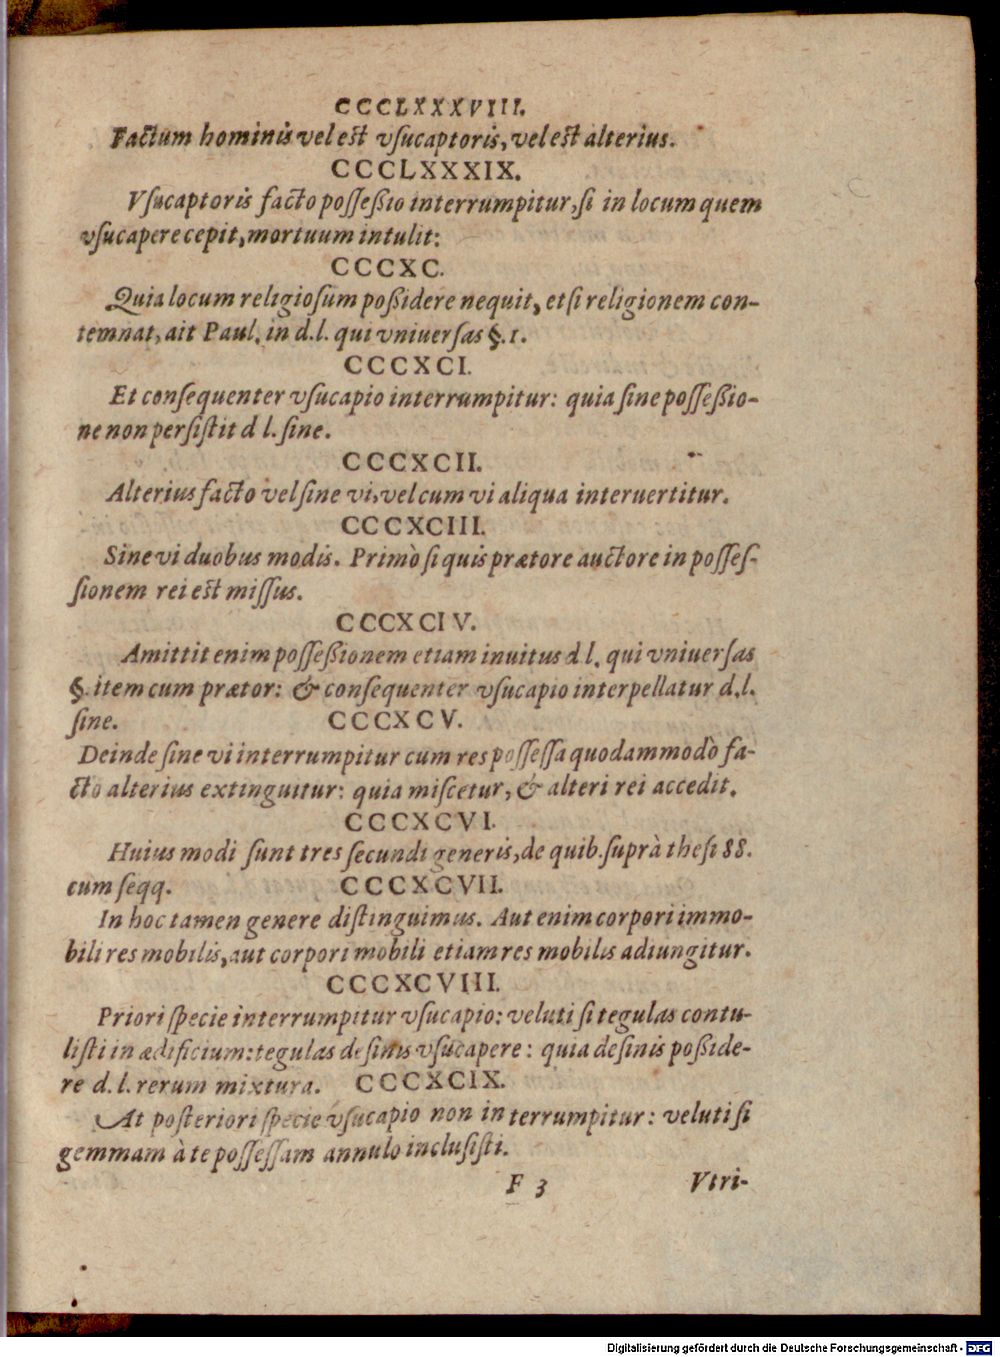 CCCLXXXVIII.
Factum hominis vel est vſucaptoris, vel est alterius.
CCCLXXXIX.
Vſucaptoris facto poſſeßio interrumpitur, ſi in locum quem
vſucapere cepit, mortuum intulit:
CCCXC.
Quia locum religioſum poßidere nequit, etſi religionem con-
temnat, ait Paul. in d.l. qui vniuerſas §.1.
CCCXCI.
Et conſequenter vſucapio interrumpitur: quia ſine poſſeßio-
ne non perſiſtit d l. ſine.
CCCXCII.
Alterius facto vel ſine vi, vel cum vi aliqua interuertitur.
CCCXCIII.
Sine vi duobus modis. Primò ſi quis prætore auctore in poſſeſ-
ſionem rei est miſſus.
CCCXCIV.
Amittit enim poſſeßionem etiam inuitus d l. qui vniuerſas
§. item cum prætor: & conſequenter vſucapio interpellatur d.l.
ſine. CCCXCV.
Deinde ſine vi interrumpitur cum res poſſeſſa quodammodò fa-
cto alterius extinguitur: quia miſcetur, & alteri rei accedit.
CCCXCVI.
Huius modi ſunt tres ſecundi generis, de quib. ſuprà theſi 88.
cum ſeqq. CCCXCVII.
In hoc tamen genere diſtinguimus. Aut enim corpori immo-
bili res mobilis, aut corpori mobili etiam res mobilis adiungitur.
CCCXCVIII.
Priori ſpecie interrumpitur vſucapio: veluti ſi tegulas contu-
liſti in ædificium: tegulas deſinis vſucapere: quia deſinis poßide-
re d.l. rerum mixtura. CCCXCIX.
At poſteriori ſpecie vſucapio non interrumpitur: veluti ſi
gemmam à te poſſeſſam annulo incluſiſti.
F 3 Vtri-
Digitalisierung gefördert durch die Deutsche Forschungsgemeinschaft - DFG